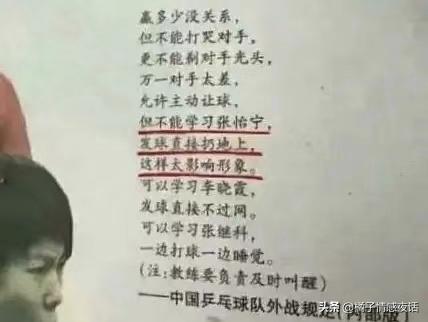 赢多少没关系，
但不能打哭对手，
更不能剃对手光头，
万一对手太差，
允许主动让球，
但不能学习张怡宁，
发球直接扔地上，
这样太影响形象。
可以学习李晓霞，
发球直接不过网。
可以学习张继科，
一边打球一边睡觉。
(注：教练要负责及时叫醒)
——中国乒乓球队外战规定(内部版)
头条 @橘子情感夜话